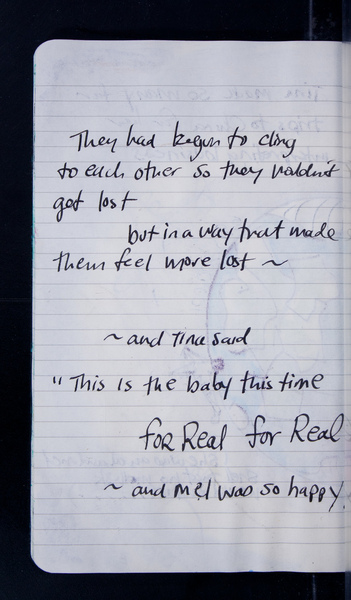 They had begun to cling
to each other so they wouldn't
get lost
but in a way that made
them feel more lost ~
~ and Tina said
" This is the baby this time
foR Real for Real
~ and Mel was so happy.